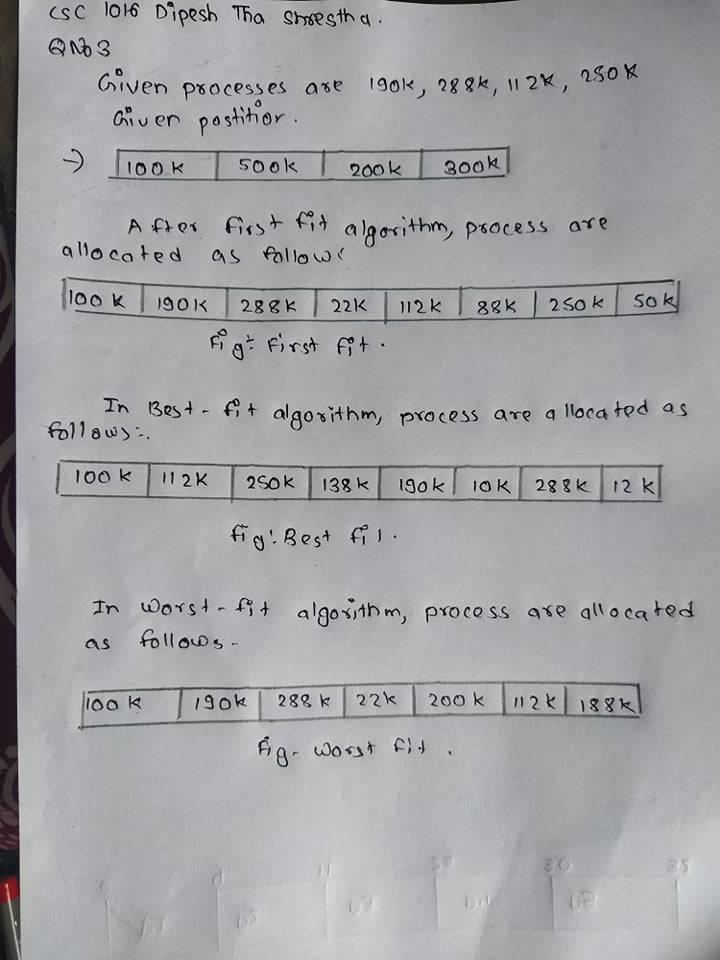 CSC 1016 Dipesh Tha Shrestha.
QNo3
Given processes are 190k, 288k, 112k, 250k
Given postitior.
→ 100k 500k 200k 300k
After first fit algorithm, process are
allocated as follow:
100k 190k 288k 22k 112k 88k 250k 50k
Fig: First fit.
In Best-fit algorithm, process are allocated as
follows:-
100k 112k 250k 138k 190k 10k 288k 12k
fig: Best fit.
In worst-fit algorithm, process are allocated
as follows-
100k 190k 288k 22k 200k 112k 188k
fig- worst fit.